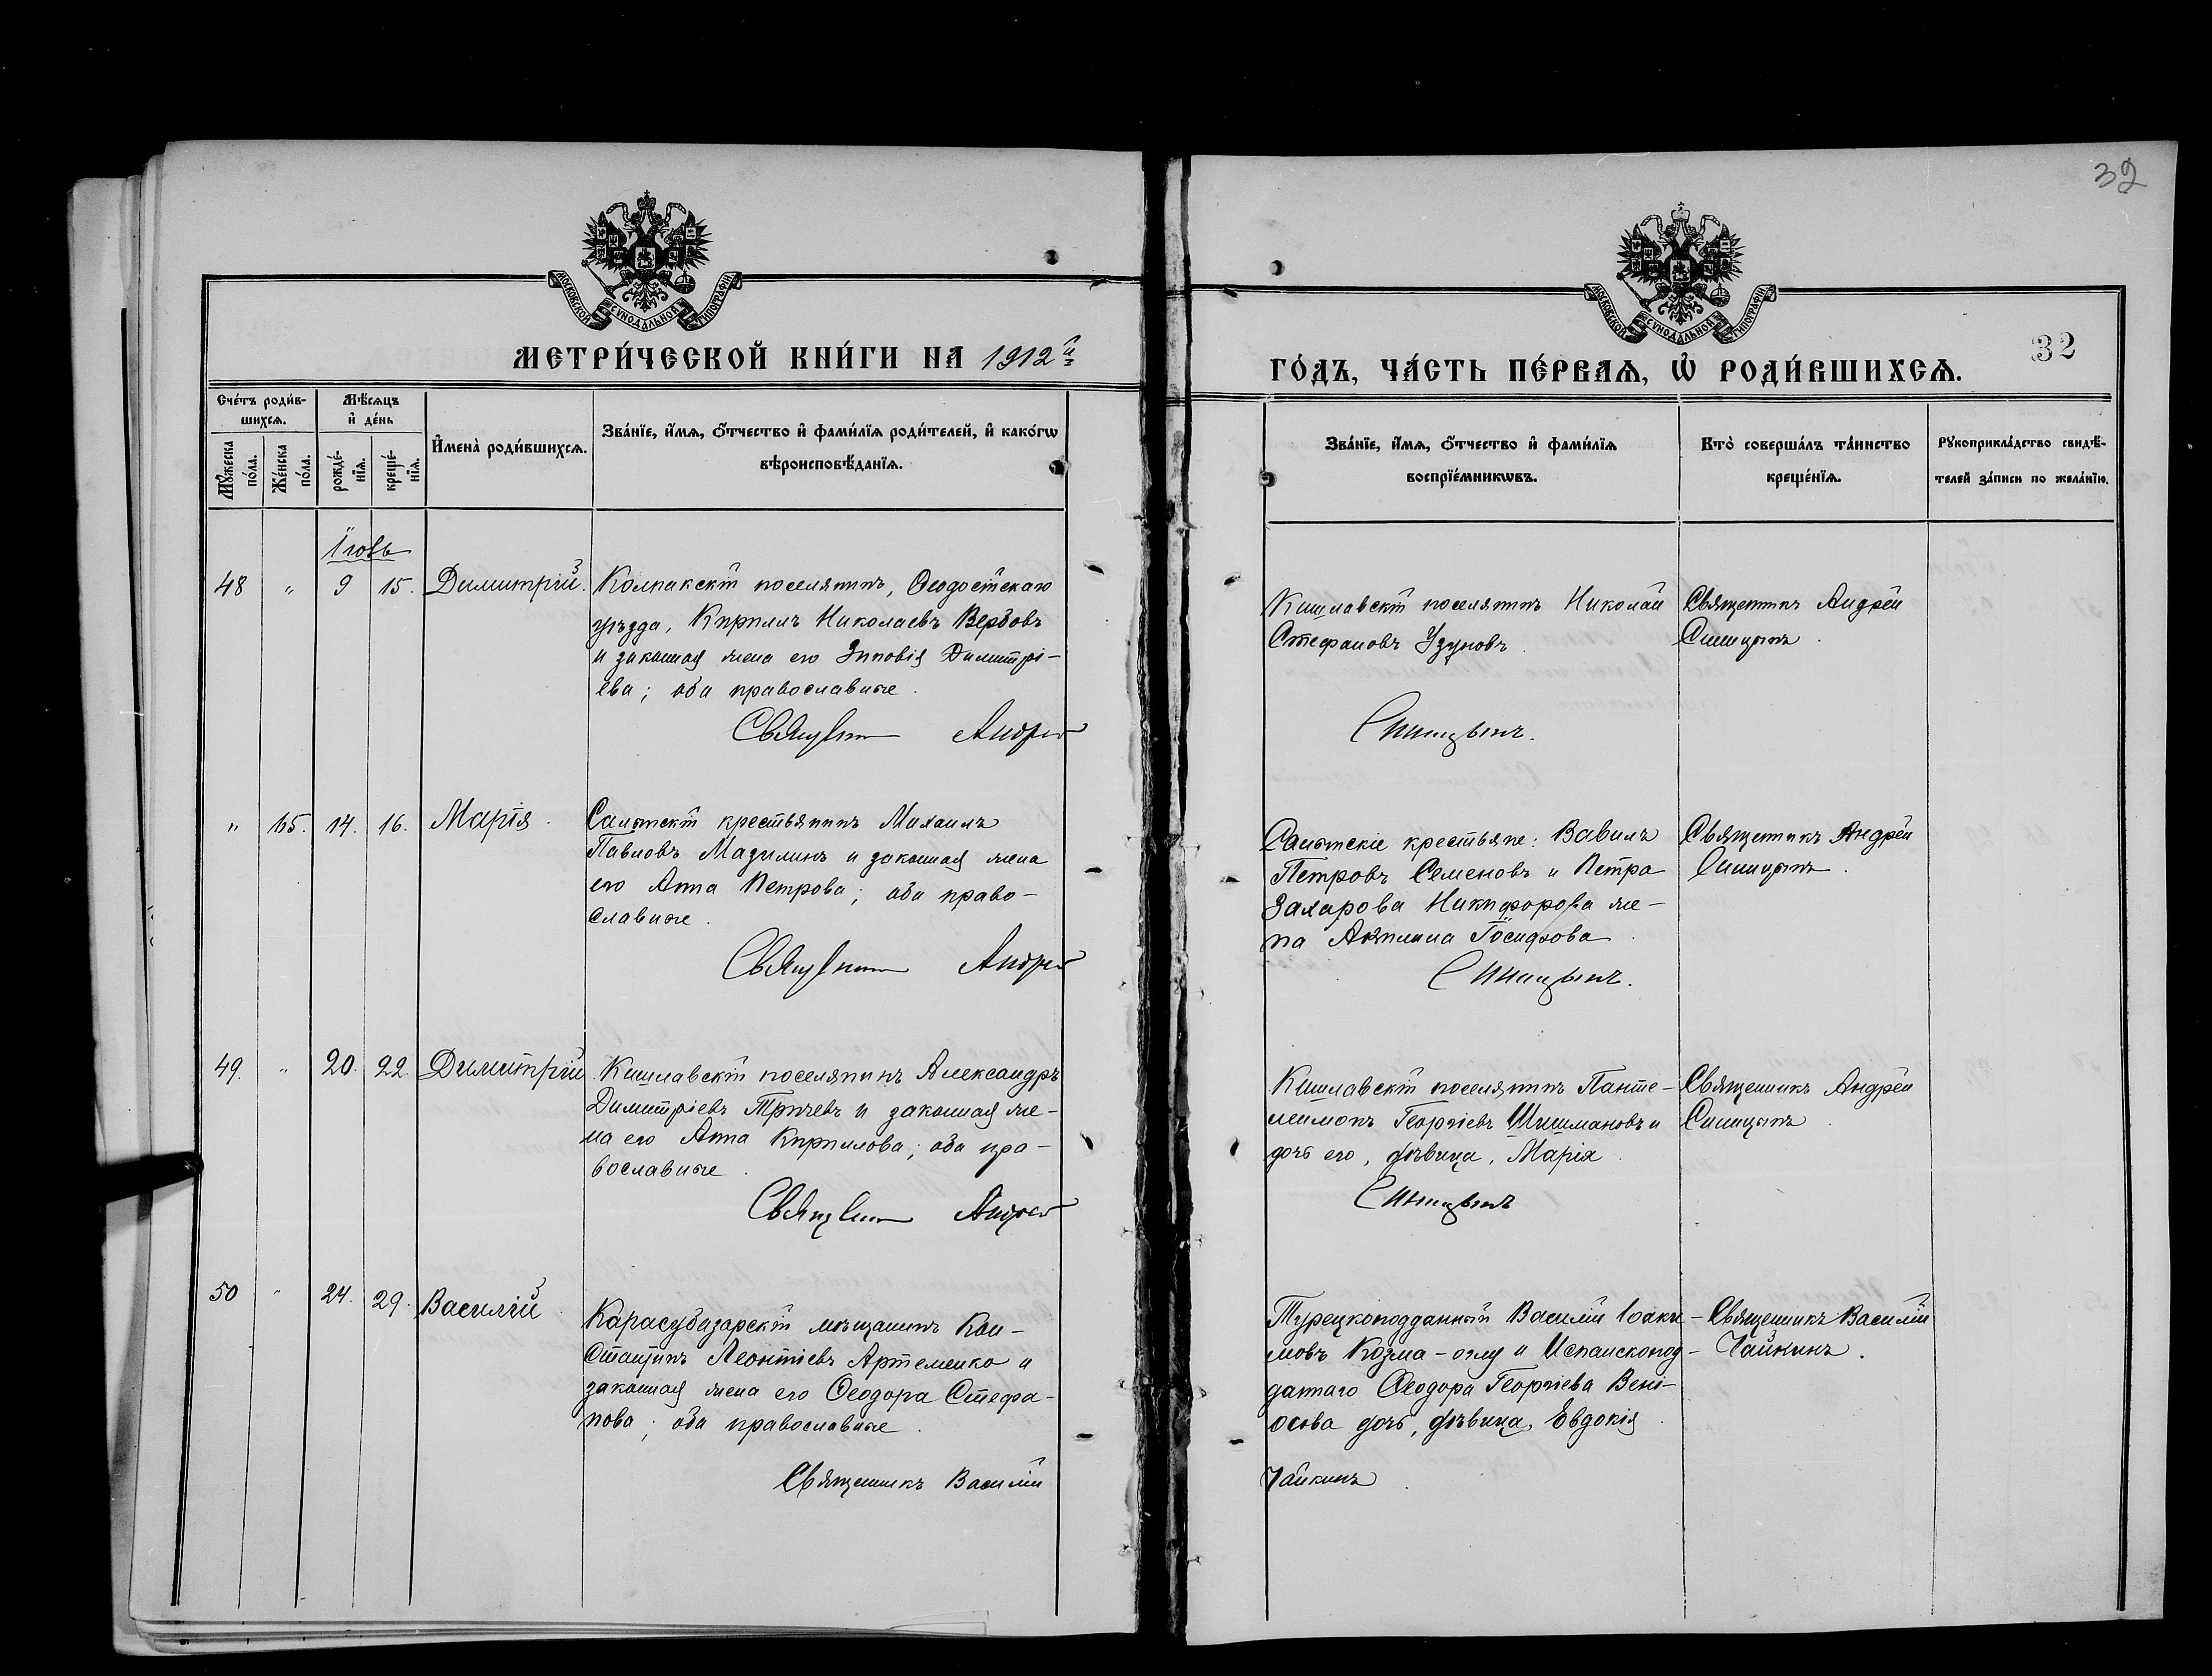 32
МОСКОВСКОЙ СѴНОДАЛЬНОЙ ТИПОГРАФІИ
МОСКОВСКОЙ СѴНОДАЛЬНОЙ ТИПОГРАФІИ
32
МЕТРИ́ЧЕСКОЙ КНИ́ГИ НА 1912й
ГО́ДЪ, ЧА́СТЬ ПЕ́РВАѦ, Ѡ҆ РОДИ́ВШИХСѦ.
Сче́тъ роди́в-
шихсѧ.
Мꙋ́жеска по́ла.
Же́нска по́ла.
Мѣ́сѧцъ
и҆ де́нь
рожде́-
нїѧ.
креще́-
нїѧ.
И҆мена̀ роди́вшихсѧ.
Зва́нїе, и҆́мѧ, ѻ҆́тчество и҆ фами́лїѧ роди́телей, и҆ како́гѡ
вѣроисповѣ́данїѧ.
Зва́нїе, и҆́мѧ, ѻ҆́тчество и҆ фами́лїѧ
воспрїе́мникѡвъ.
Кто̀ соверша́лъ та́инство
креще́нїѧ.
Рꙋкоприкла́дство свидѣ́-
телей за́писи по жела́нїю.
Іюнь
48 " 9 15. Димитрій.
Колпакскій поселянинъ, Ѳеодосійскаго
уѣзда, Кириллъ Николаевъ Вербовъ
и законная жена его Зиновія Димитрі-
ева; оба православные.
Священник Андрей
Кишлавскій поселянинъ Николай
Стефановъ Узуновъ.
Синицынъ.
Священникъ Андрей
Синицынъ.
" 15. 14. 16. Марія.
Салынскій крестьянинъ Михаилъ
Павловъ Мазилинъ и законная жена
его Анна Петрова; оба право-
славные.
Священник Андрей
Салынскіе крестьяне: Вавилъ
Петровъ Семеновъ и Петра
Захарова Никифорова же-
на Акилина Іосифова.
Синицынъ.
Священникъ Андрей
Синицынъ.
49. " 20. 22. Димитрій
Кишлавскій поселянинъ Александръ
Димитріевъ Тричевъ и законная же-
на его Анна Кириллова; оба пра-
вославные.
Священник Андрей
Кишлавскій поселянинъ Панте-
леимонъ Георгіевъ Шишмановъ и
дочь его, дѣвица, Марія.
Синицынъ
Священникъ Андрей
Синицынъ.
50 " 24. 29. Василій.
Карасубазарскій мѣщанинъ Кон-
стантинъ Леонтіевъ Артеменко и
законная жена его Ѳеодора Стефа-
нова; оба православные.
Священникъ Василій
Турецкоподданный Василій Іоаки-
мовъ Козма-оглу и Испанскопод-
даннаго Ѳеодора Георгіева Вені-
осова дочь, дѣвица, Евдокія.
Чайкинъ.
Священникъ Василій
Чайкинъ.